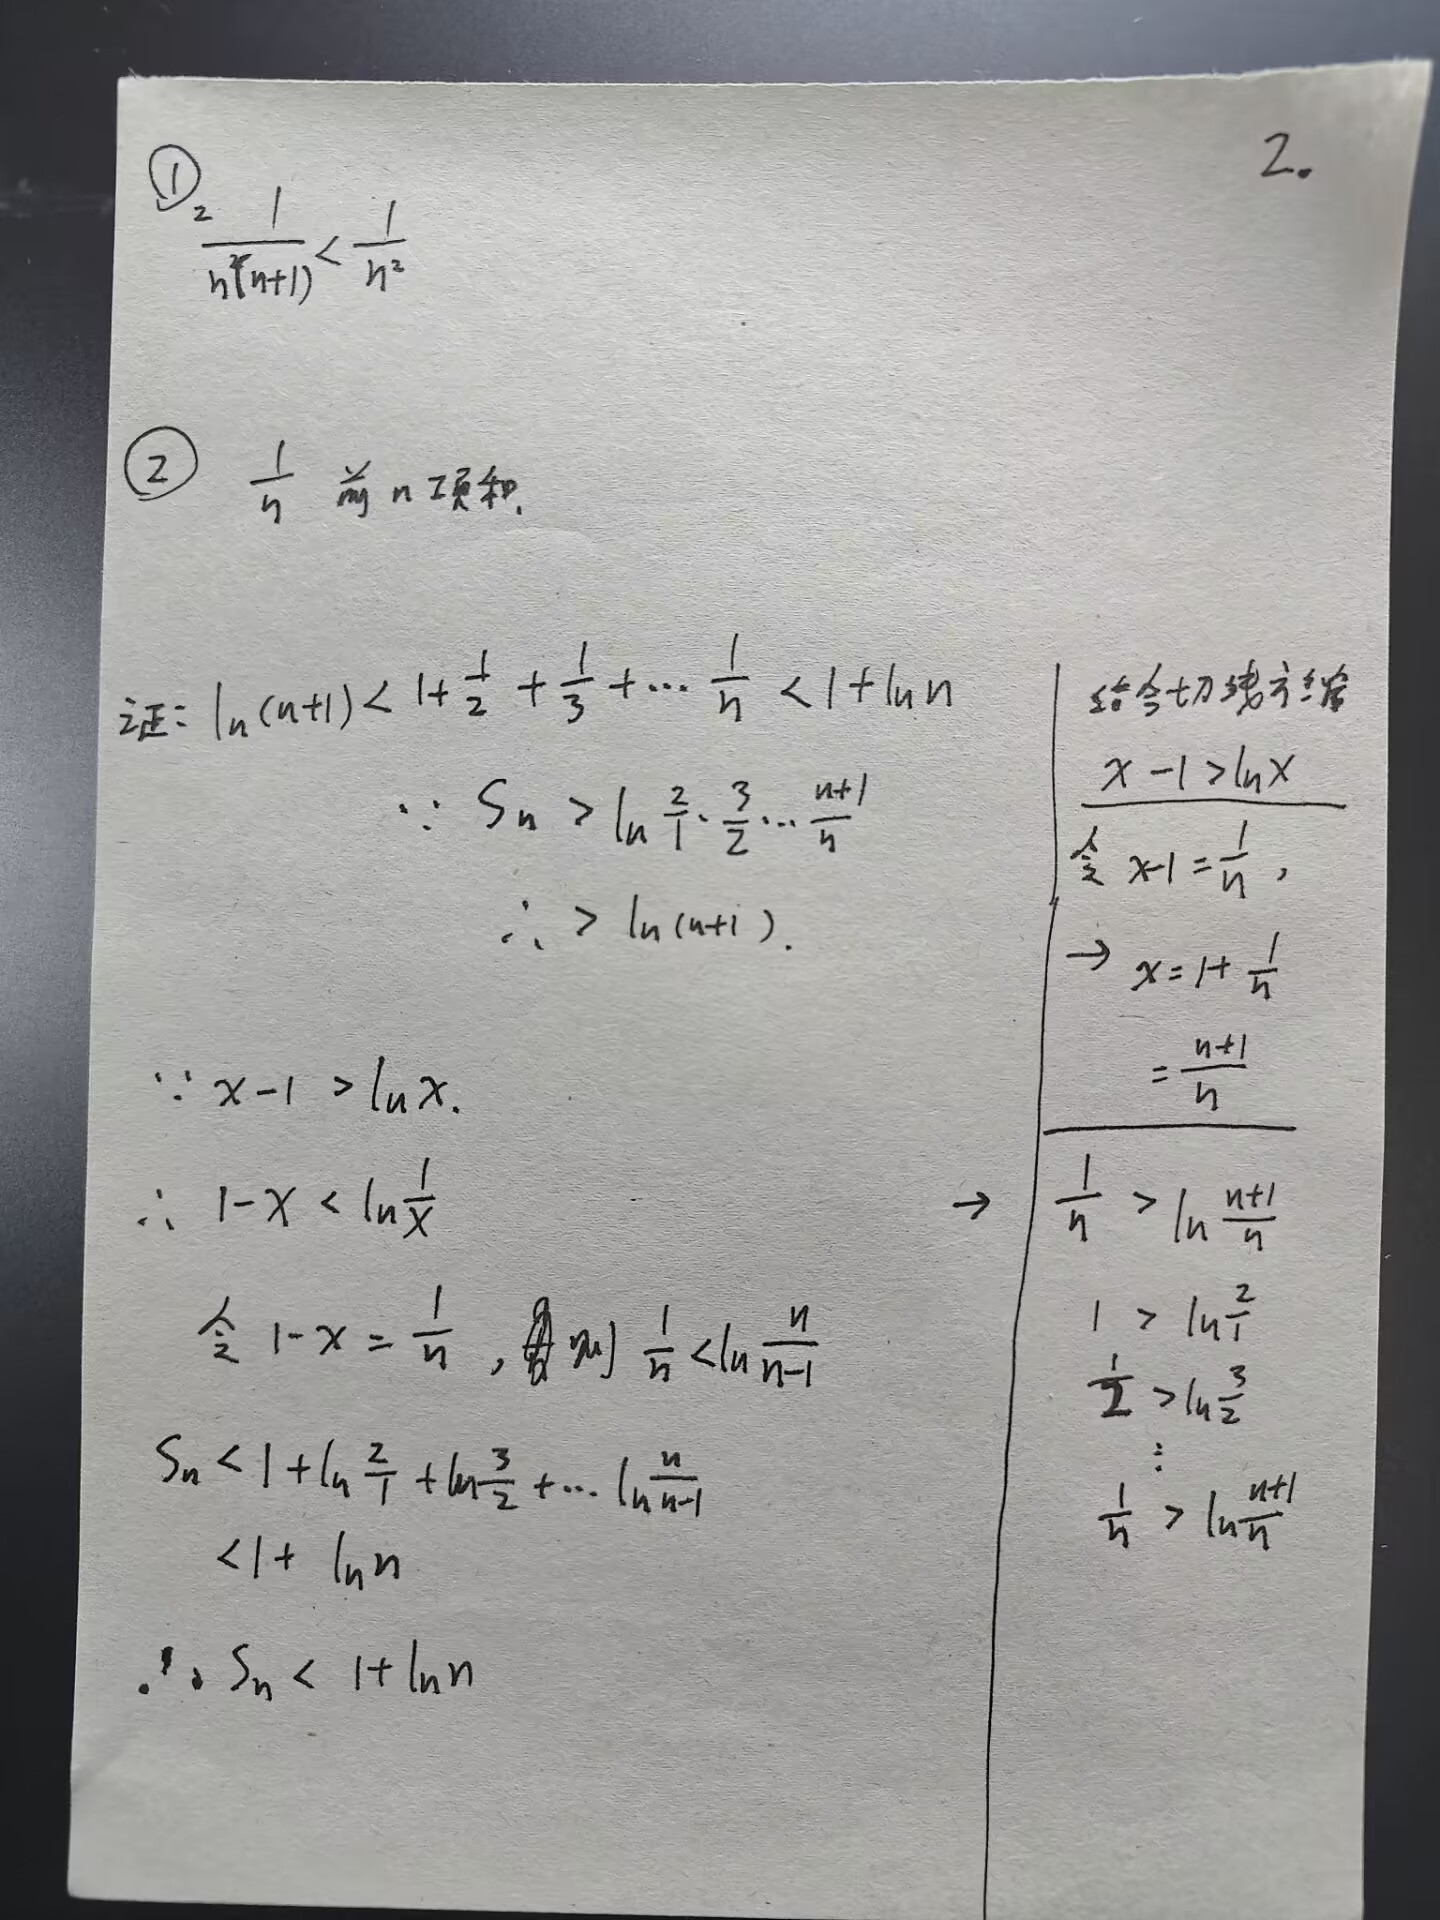 2.
①
2 1/(n²(n+1)) < 1/n²
② 1/n 前n项和.
证: ln(n+1) < 1 + 1/2 + 1/3 + ⋯ 1/n < 1 + ln n
∵ Sn > ln 2/1 · 3/2 ⋯ (n+1)/n
∴ > ln(n+1).
∵ x-1 > ln x.
∴ 1-x < ln 1/x
令 1-x = 1/n , 则 1/n < ln n/(n-1)
Sn < 1 + ln 2/1 + ln 3/2 + ⋯ ln n/(n-1)
< 1 + ln n
∴ Sn < 1 + ln n
结合切线方缩
x-1 > ln x
令 x-1 = 1/n ,
→ x = 1 + 1/n
= (n+1)/n
→ 1/n > ln (n+1)/n
1 > ln 2/1
1/2 > ln 3/2
⋮
1/n > ln (n+1)/n